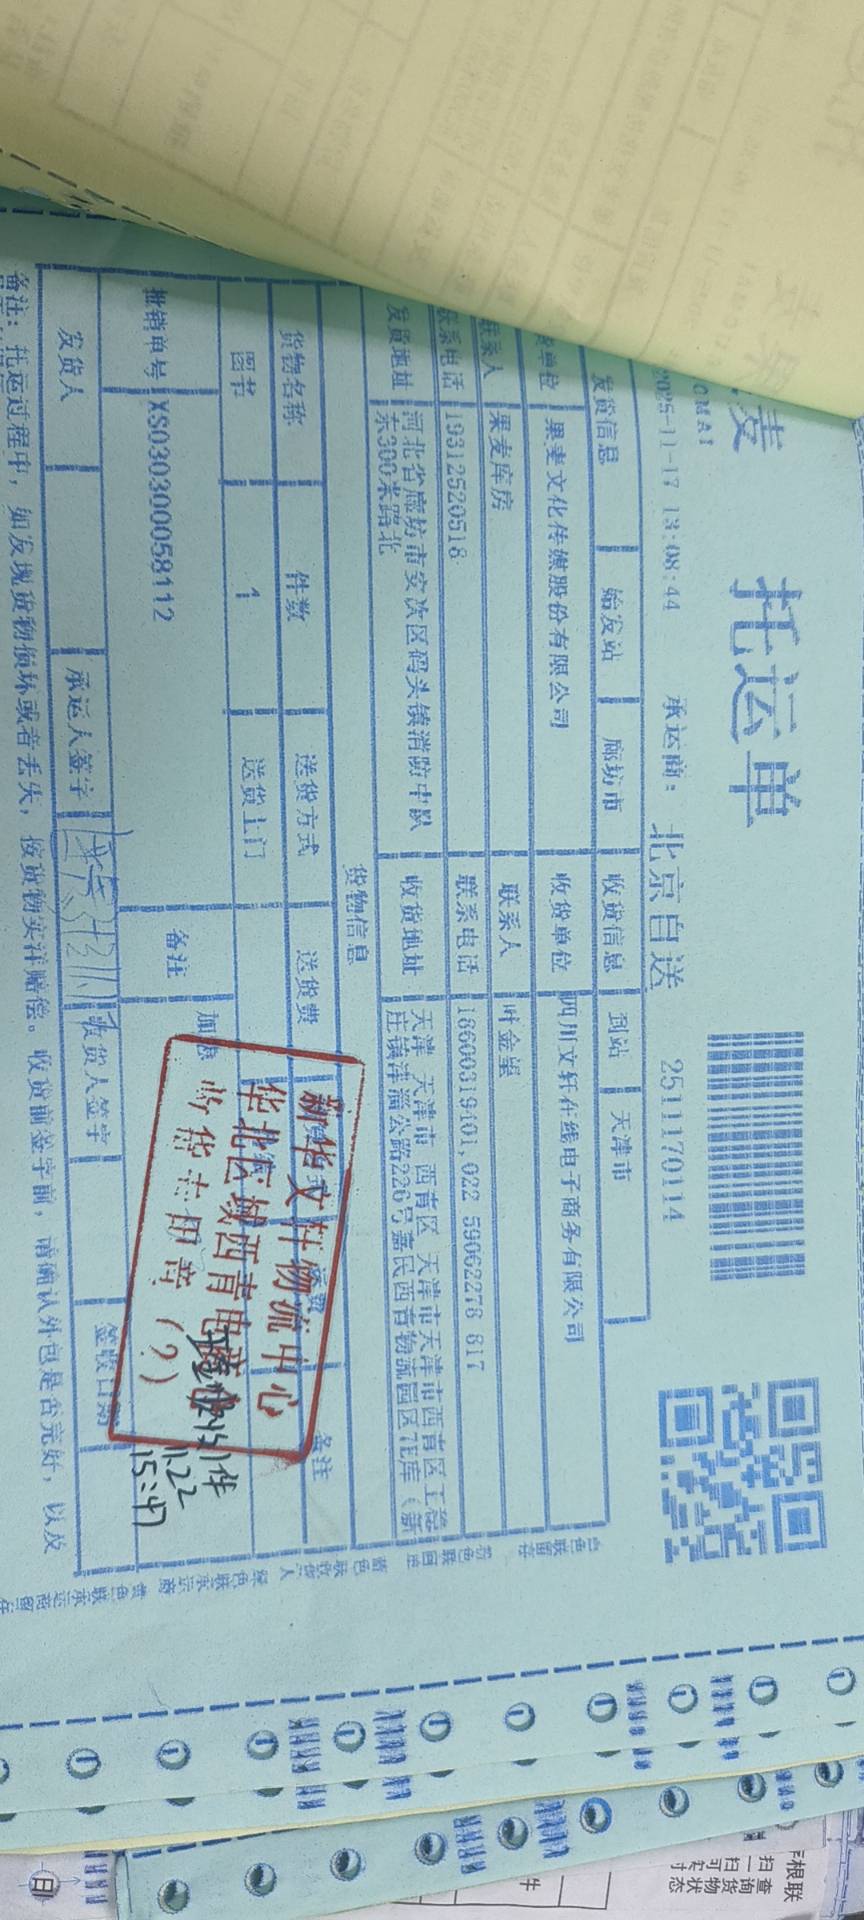 麦
托运单
OMAI
2025-11-17 13:08:44 承运商: 北京自送 2511170114
发货信息 始发站 廊坊市 收货信息 到站 天津市
单位 果麦文化传媒股份有限公司 收货单位 四川文轩在线电子商务有限公司
联系人 果麦库房 联系人 叶金望
联系电话 19312520518 联系电话 18600319401,022 59062278 817
发货地址 河北省廊坊市安次区码头镇消防中队东300米路北 收货地址 天津 天津市 西青区 天津市天津市西青区王稳庄镇津淄公路226号嘉民西青物流园区7E库(新
货物信息
货物名称 件数 送货方式 送货费 备注
图书 1 送货上门
批销单号 XS030300058112 备注 加急
发货人 承运人签字 收货人签字 签收日期
备注: 托运过程中, 如发现货物损坏或者丢失, 按货物实洋赔偿。收货前签字前, 请确认外包是否完好, 以及
新华文轩物流中心
华北区域西青电商
收货专用章 (2)
1件
11.22
15:47
白色联留存 粉色联回单 蓝色联收货人 绿色联承运商 黄色联承运商留存
根联
扫一扫
查询货物状态